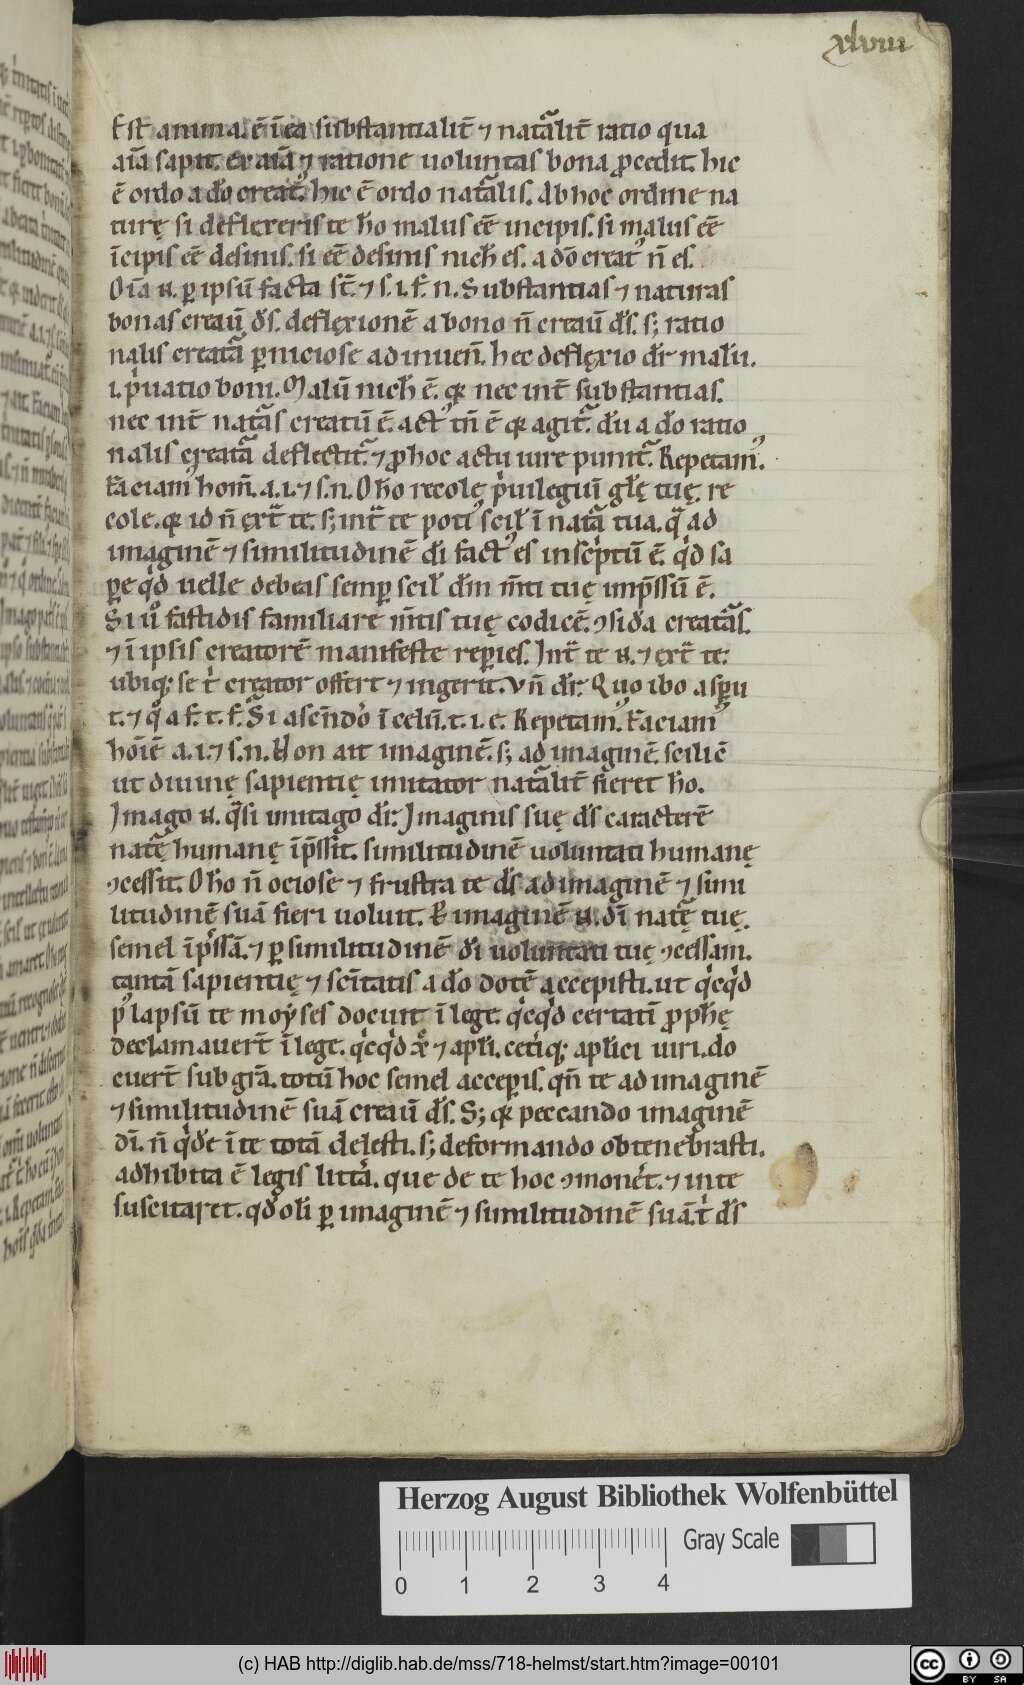 xlviii
Est anima. ē ī ea substantialit̄ ⁊ nat͛alit̄ ratio qua
aīa sapit. Ex aīa ⁊ ratione uoluntas bona ꝓcedit. hic
ē ordo a do creat᷒. hic ē ordo nat͛alis. Ab hoc ordine na
turę si deflexeris te ho malus ēē incipis. si malus ēē
īcipis ēē desinis. si ēē desinis nich̄ es. a dō creat᷒ n̄ es.
Oīa .n. ꝑ ipsū facta st̄. ⁊ s. i. f. n. Substantias ⁊ naturas
bonas creauͥ ds̄. deflęxionē a bono n̄ creauͥ ds̄. s; ratio
nalis creat͛a ꝑniciose adinuen̄. hec deflęxio dr̄ malū.
.i. pͥuatio boni. Malū nich̄ ē. qꝫ nec int̄ substantias.
nec int̄ nat͛as creatū ē. act᷒ tn̄ ē qꝫ agit͛. dū a do ratio
nalis creat͛a deflectit͛. ⁊ ꝓ hoc actu iure punit͛. Repetam᷒.
Faciam᷒ hom̄. a. i. ⁊ s. n. O ho recole pͥuilegiū gl̄ę tuę. re
cole. qꝫ id n̄ ext͛ te. s; int͛ te poti᷒ scil̄ ī nat͛a tua. q̄ ad
imaginē ⁊ similitudinē dī fact᷒ es inscͥptū ē. qͥd sa
ꝑe qͥd uelle debeas semꝑ scil̄ dm̄ m̄ti tuę imp̄ssū ē.
Si ůͦ fastidis familiare m̄tis tuę codicē. ꝯsid̄a creat͛as.
⁊ ī ipsis creatorē manifeste reꝑies. Int͛ te .n. ⁊ ext͛ te.
ubiqꝫ se tͥ creator offert ⁊ ingerit. Vn̄ dr̄. Quo ibo a sp̄u
t. ⁊ qͦ a f. t. f. Si ascēdo ī celū. t. i. e. Repetam᷒. Faciam᷒
hoīē a. i. ⁊ s. n. Non ait imaginē. s; ad imaginē. sciliē
ut diuinę sapientię imitator nat͛alit̄ fieret ho.
Imago .n. qͣsi imitago dr̄. Imaginis suę ds̄ caracterē
nat͛ę humanę īp̄ssit. similitudinē uoluntati humanę
ꝯcessit. O ho n̄ ociose ⁊ frustra te ds̄ ad imaginē ⁊ simi
litudinē suā fieri uoluit. Ex imaginē .n. dī nat͛ę tuę.
semel īp̄ssā. ⁊ ꝑ similitudinē dī uoluntati tuę ꝯcessam.
tantā sapientię ⁊ sc̄itatis a do dotē accepisti. ut qͥcqͥd
p᷒ lapsū te moyses docuit ī lege. qͥcqͥd certatī ꝓph̄ę
declamauert̄ ī lege. qͥcqͥd xp̄c ⁊ apl̄i. cetiqꝫ apl̄ici uiri. do
cuert̄ sub gra. totū hoc semel acceꝑis. qn̄ te ad imaginē
⁊ similitudinē suā creauͥ ds̄. S; qꝫ peccando imaginē
dī. n̄ qͥdē ī te totā delesti. s; deformando obtenebrasti.
adhibita ē legis litt͛a. que de te hoc ꝯmonet. ⁊ in te
suscitaret. qd̄ olī ꝑ imaginē ⁊ similitudinē suā. tͥ ds̄
Herzog August Bibliothek Wolfenbüttel
Gray Scale
0 1 2 3 4
(c) HAB http://diglib.hab.de/mss/718-helmst/start.htm?image=00101
cc BY SA